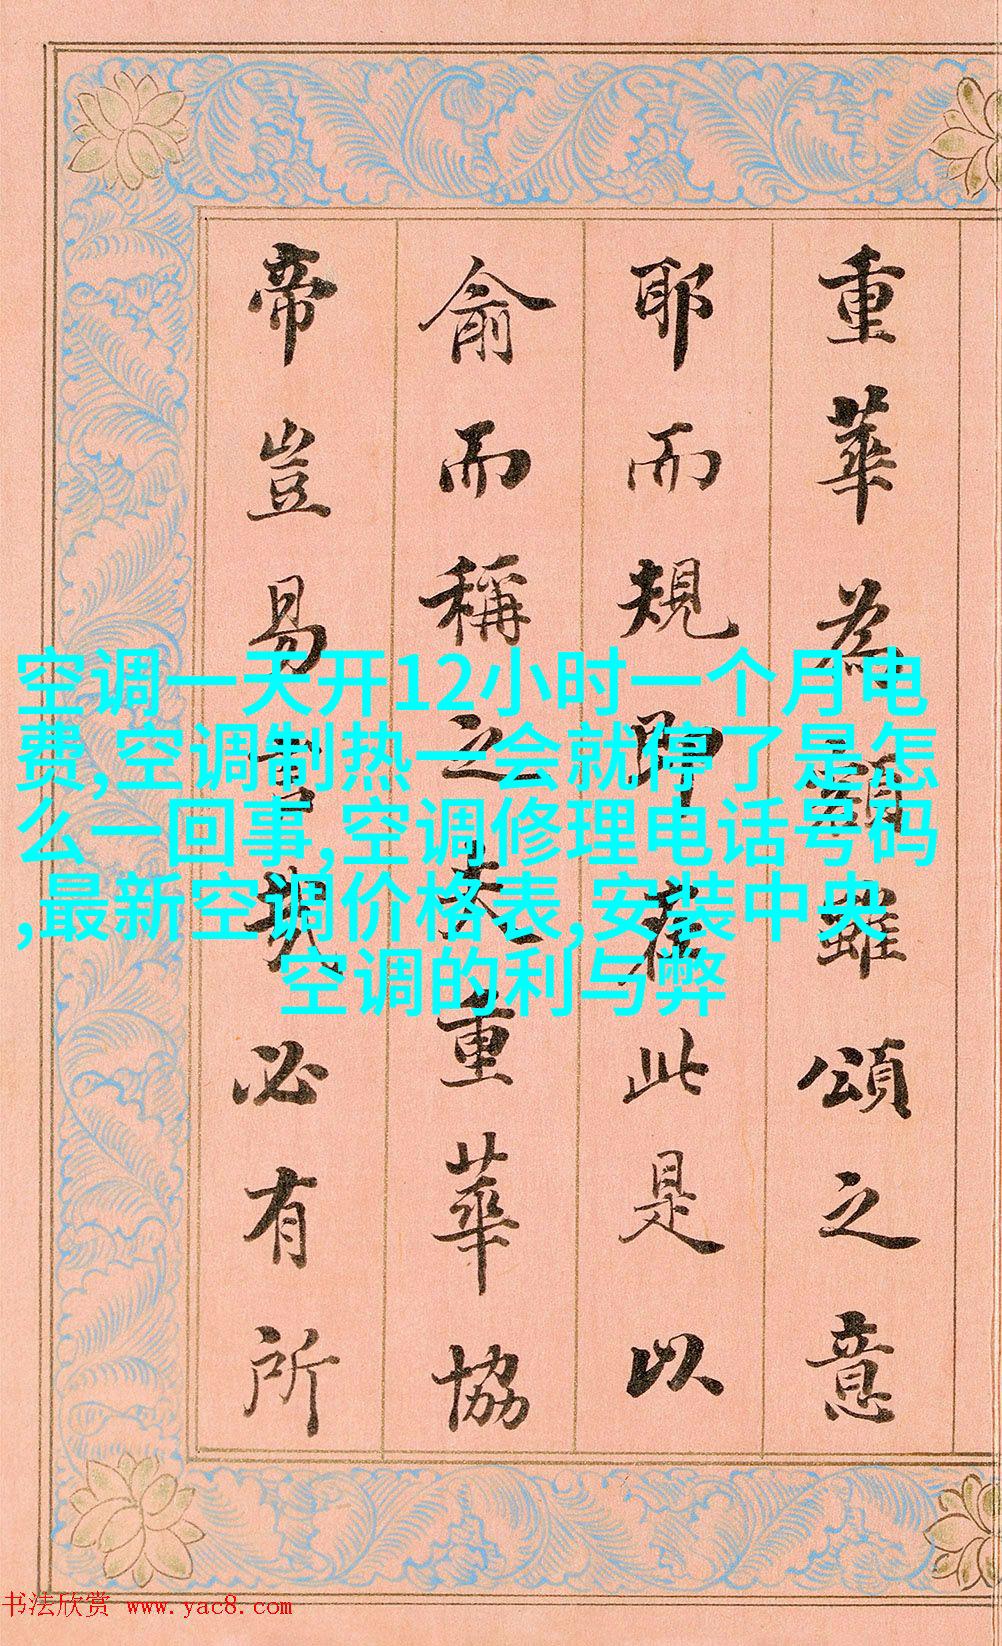 重華為雖頌之意
耶而規即此是以
俞而稱之夫重華協
帝豈易言哉必有所
空调一天开12小时一个月电
费,空调制热一会就停了是怎
么一回事,空调修理电话号码
,最新空调价格表,安装中央
空调的利与弊
书法欣赏 www.yac8.com